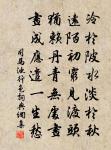 冷於陂水淡於秋
遠陌初窮見渡頭
猶賴丹青無處畫
畫成應遣一生愁
司馬池行色詞典網書